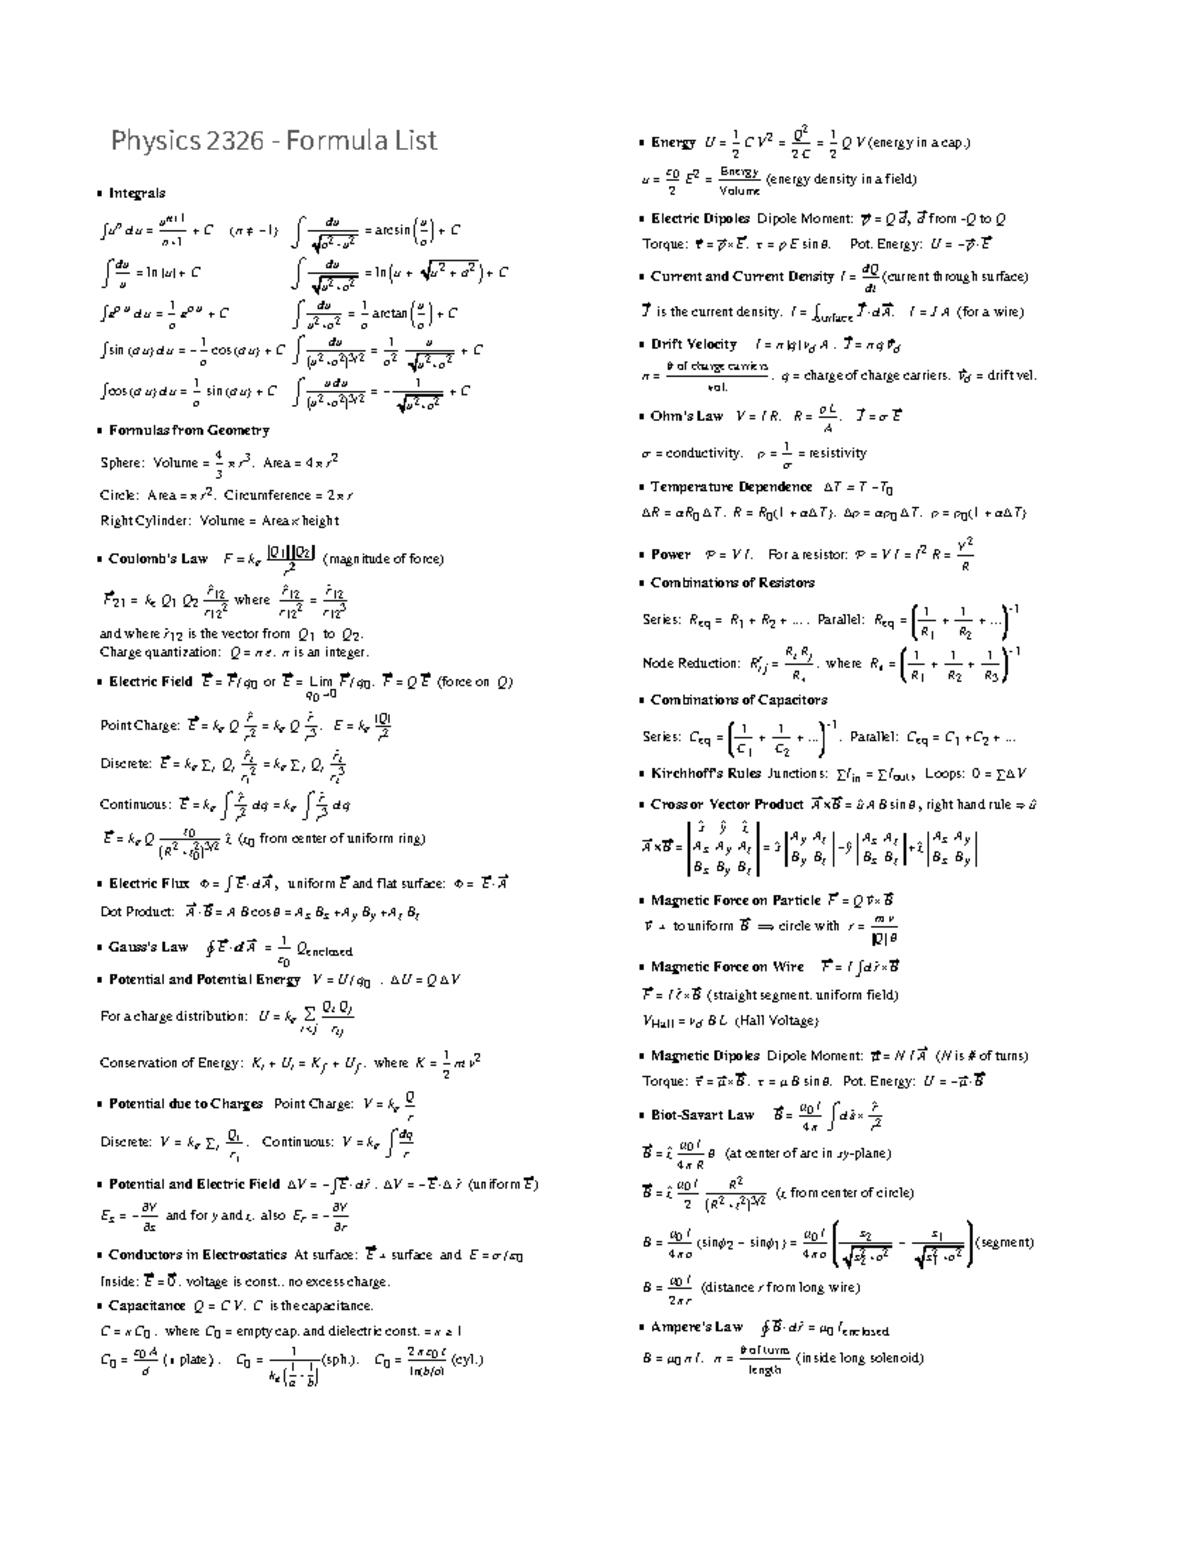 Physics 2326 - Formula List
▪ Integrals
∫uⁿ du = uⁿ⁺¹/(n+1) + C (n ≠ −1) ∫ du/√(a²-u²) = arcsin(u/a) + C
∫ du/u = ln |u| + C ∫ du/√(u²+a²) = ln(u + √(u² + a²)) + C
∫e^(a u) du = 1/a e^(a u) + C ∫ du/(u²+a²) = 1/a arctan(u/a) + C
∫sin (a u) du = −1/a cos (a u) + C ∫ du/(u²+a²)^(3/2) = 1/a² u/√(u²+a²) + C
∫cos (a u) du = 1/a sin (a u) + C ∫ u du/(u²+a²)^(3/2) = −1/√(u²+a²) + C
▪ Formulas from Geometry
Sphere: Volume = 4/3 π r³. Area = 4 π r²
Circle: Area = π r². Circumference = 2 π r
Right Cylinder: Volume = Area × height
▪ Coulomb's Law F = kₑ |Q₁||Q₂|/r² (magnitude of force)
F⃗₂₁ = kₑ Q₁ Q₂ r̂₁₂/r₁₂² where r̂₁₂/r₁₂² = r⃗₁₂/r₁₂³
and where r⃗₁₂ is the vector from Q₁ to Q₂.
Charge quantization: Q = n e. n is an integer.
▪ Electric Field E⃗ = F⃗/q₀ or E⃗ = Lim q₀→0 F⃗/q₀. F⃗ = Q E⃗ (force on Q)
Point Charge: E⃗ = kₑ Q r̂/r² = kₑ Q r⃗/r³. E = kₑ |Q|/r²
Discrete: E⃗ = kₑ Σᵢ Qᵢ r̂ᵢ/rᵢ² = kₑ Σᵢ Qᵢ r⃗ᵢ/rᵢ³
Continuous: E⃗ = kₑ ∫ r̂/r² dq = kₑ ∫ r⃗/r³ dq
E⃗ = kₑ Q z₀/(R²+z₀²)^(3/2) ẑ (z₀ from center of uniform ring)
▪ Electric Flux Φ = ∫ E⃗·dA⃗, uniform E⃗ and flat surface: Φ = E⃗·A⃗
Dot Product: A⃗·B⃗ = A B cos θ = Aₓ Bₓ + A_y B_y + A_z B_z
▪ Gauss's Law ∮ E⃗·dA⃗ = 1/ε₀ Q_enclosed
▪ Potential and Potential Energy V = U/q₀ . ΔU = Q ΔV
For a charge distribution: U = kₑ Σ i<j Qᵢ Qⱼ/rᵢⱼ
Conservation of Energy: Kᵢ + Uᵢ = K_f + U_f. where K = 1/2 m v²
▪ Potential due to Charges Point Charge: V = kₑ Q/r
Discrete: V = kₑ Σᵢ Qᵢ/rᵢ . Continuous: V = kₑ ∫ dq/r
▪ Potential and Electric Field ΔV = −∫E⃗·dr⃗ . ΔV = −E⃗·Δ r⃗ (uniform E⃗)
Eₓ = −∂V/∂x and for y and z. also E_r = −∂V/∂r
▪ Conductors in Electrostatics At surface: E⃗ ⊥ surface and E = σ/ε₀
Inside: E⃗ = 0⃗. voltage is const.. no excess charge.
▪ Capacitance Q = C V. C is the capacitance.
C = κ C₀ . where C₀ = empty cap. and dielectric const. = κ ≥ 1
C₀ = ε₀ A/d (∥ plate) . C₀ = 1/(kₑ(1/a - 1/b)) (sph.). C₀ = 2 π ε₀ ℓ/ln(b/a) (cyl.)
▪ Energy U = 1/2 C V² = Q²/(2 C) = 1/2 Q V (energy in a cap.)
u = ε₀/2 E² = Energy/Volume (energy density in a field)
▪ Electric Dipoles Dipole Moment: p⃗ = Q d⃗, d⃗ from -Q to Q
Torque: τ⃗ = p⃗×E⃗. τ = p E sin θ. Pot. Energy: U = −p⃗·E⃗
▪ Current and Current Density I = dQ/dt (current through surface)
J⃗ is the current density. I = ∫_surface J⃗·dA⃗. I = J A (for a wire)
▪ Drift Velocity I = n |q| v_d A . J⃗ = n q v⃗_d
n = # of charge carriers/vol. . q = charge of charge carriers. v⃗_d = drift vel.
▪ Ohm's Law V = I R. R = ρ L/A. J⃗ = σ E⃗
σ = conductivity. ρ = 1/σ = resistivity
▪ Temperature Dependence ΔT = T −T₀
ΔR = αR₀ ΔT. R = R₀(1 + αΔT). Δρ = αρ₀ ΔT. ρ = ρ₀(1 + αΔT)
▪ Power 𝒫 = V I. For a resistor: 𝒫 = V I = I² R = V²/R
▪ Combinations of Resistors
Series: R_eq = R₁ + R₂ + ... . Parallel: R_eq = (1/R₁ + 1/R₂ + ...)⁻¹
Node Reduction: R′ᵢⱼ = Rᵢ Rⱼ/Rₛ . where Rₛ = (1/R₁ + 1/R₂ + 1/R₃)⁻¹
▪ Combinations of Capacitors
Series: C_eq = (1/C₁ + 1/C₂ + ...)⁻¹. Parallel: C_eq = C₁ +C₂ + ...
▪ Kirchhoff's Rules Junctions: ΣI_in = ΣI_out, Loops: 0 = ΣΔV
▪ Cross or Vector Product A⃗×B⃗ = û A B sin θ, right hand rule ⇒ û
A⃗×B⃗ = |x̂ ŷ ẑ; Aₓ A_y A_z; Bₓ B_y B_z| = x̂ |A_y A_z; B_y B_z| −ŷ |Aₓ A_z; Bₓ B_z| +ẑ |Aₓ A_y; Bₓ B_y|
▪ Magnetic Force on Particle F⃗ = Q v⃗×B⃗
v⃗ ⊥ to uniform B⃗ ⟹ circle with r = m v/(|Q| B)
▪ Magnetic Force on Wire F⃗ = I ∫dr⃗×B⃗
F⃗ = I ℓ⃗×B⃗ (straight segment. uniform field)
V_Hall = v_d B L (Hall Voltage)
▪ Magnetic Dipoles Dipole Moment: μ⃗ = N I A⃗ (N is # of turns)
Torque: τ⃗ = μ⃗×B⃗. τ = μ B sin θ. Pot. Energy: U = −μ⃗·B⃗
▪ Biot-Savart Law B⃗ = μ₀ I/4π ∫ds⃗× r̂/r²
B⃗ = ẑ μ₀ I/(4 π R) θ (at center of arc in xy-plane)
B⃗ = ẑ μ₀ I/2 R²/(R²+z²)^(3/2) (z from center of circle)
B = μ₀ I/(4 π a) (sinφ₂ − sinφ₁) = μ₀ I/(4 π a) (x₂/√(x₂²+a²) − x₁/√(x₁²+a²)) (segment)
B = μ₀ I/(2 π r) (distance r from long wire)
▪ Ampere's Law ∮ B⃗·dr⃗ = μ₀ I_enclosed
B = μ₀ n I. n = # of turns/length (inside long solenoid)